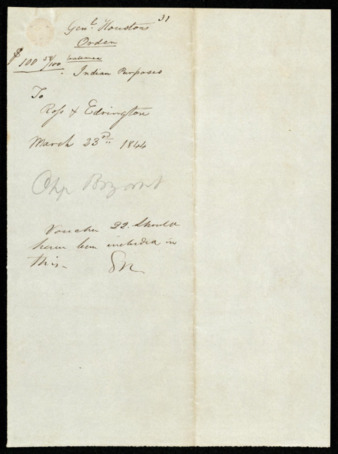 31
Genl Houston's
Order
$100 50/100
Indian Purposes
To
Ross & Edrington
March 23rd 1844
Voucher 22. Should
have been included in
this.